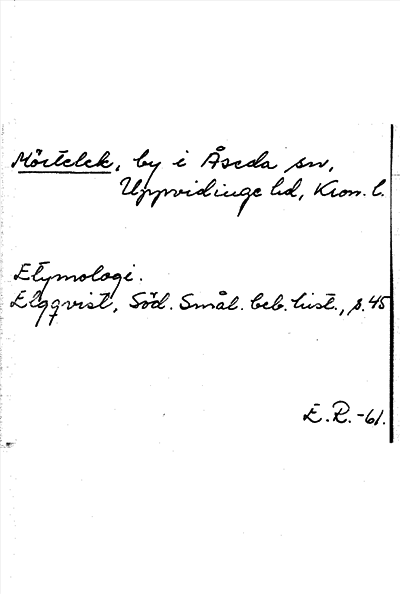 Mörtelek, by i Åseda sn,
Uppvidinge hd, Kron. l.
Etymologi.
Elqqvist, Söd. Smål. beb. hist., s. 45
E. R. -61.